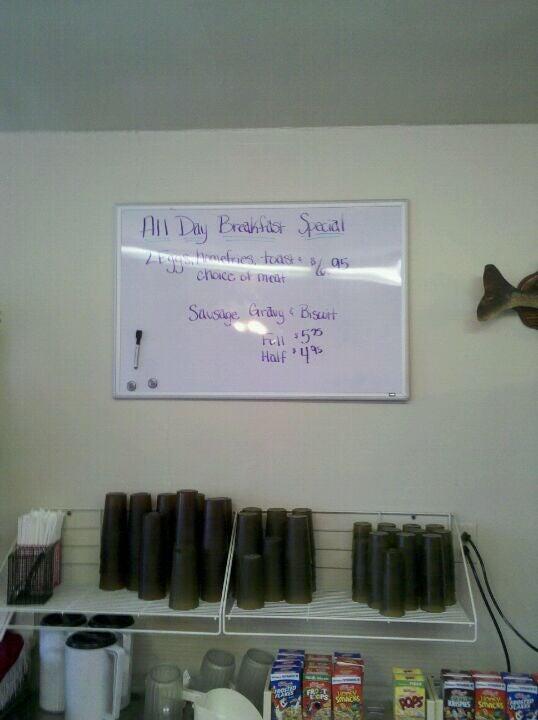 All Day Breakfast Special
2 Eggs, homefries, toast & $6.95
choice of meat
Sausage Gravy & Biscuit
Full $5.75
Half $4.95
FROSTED FLAKES
FROOT LOOPS
POPS
KRISPIES
SMACKS